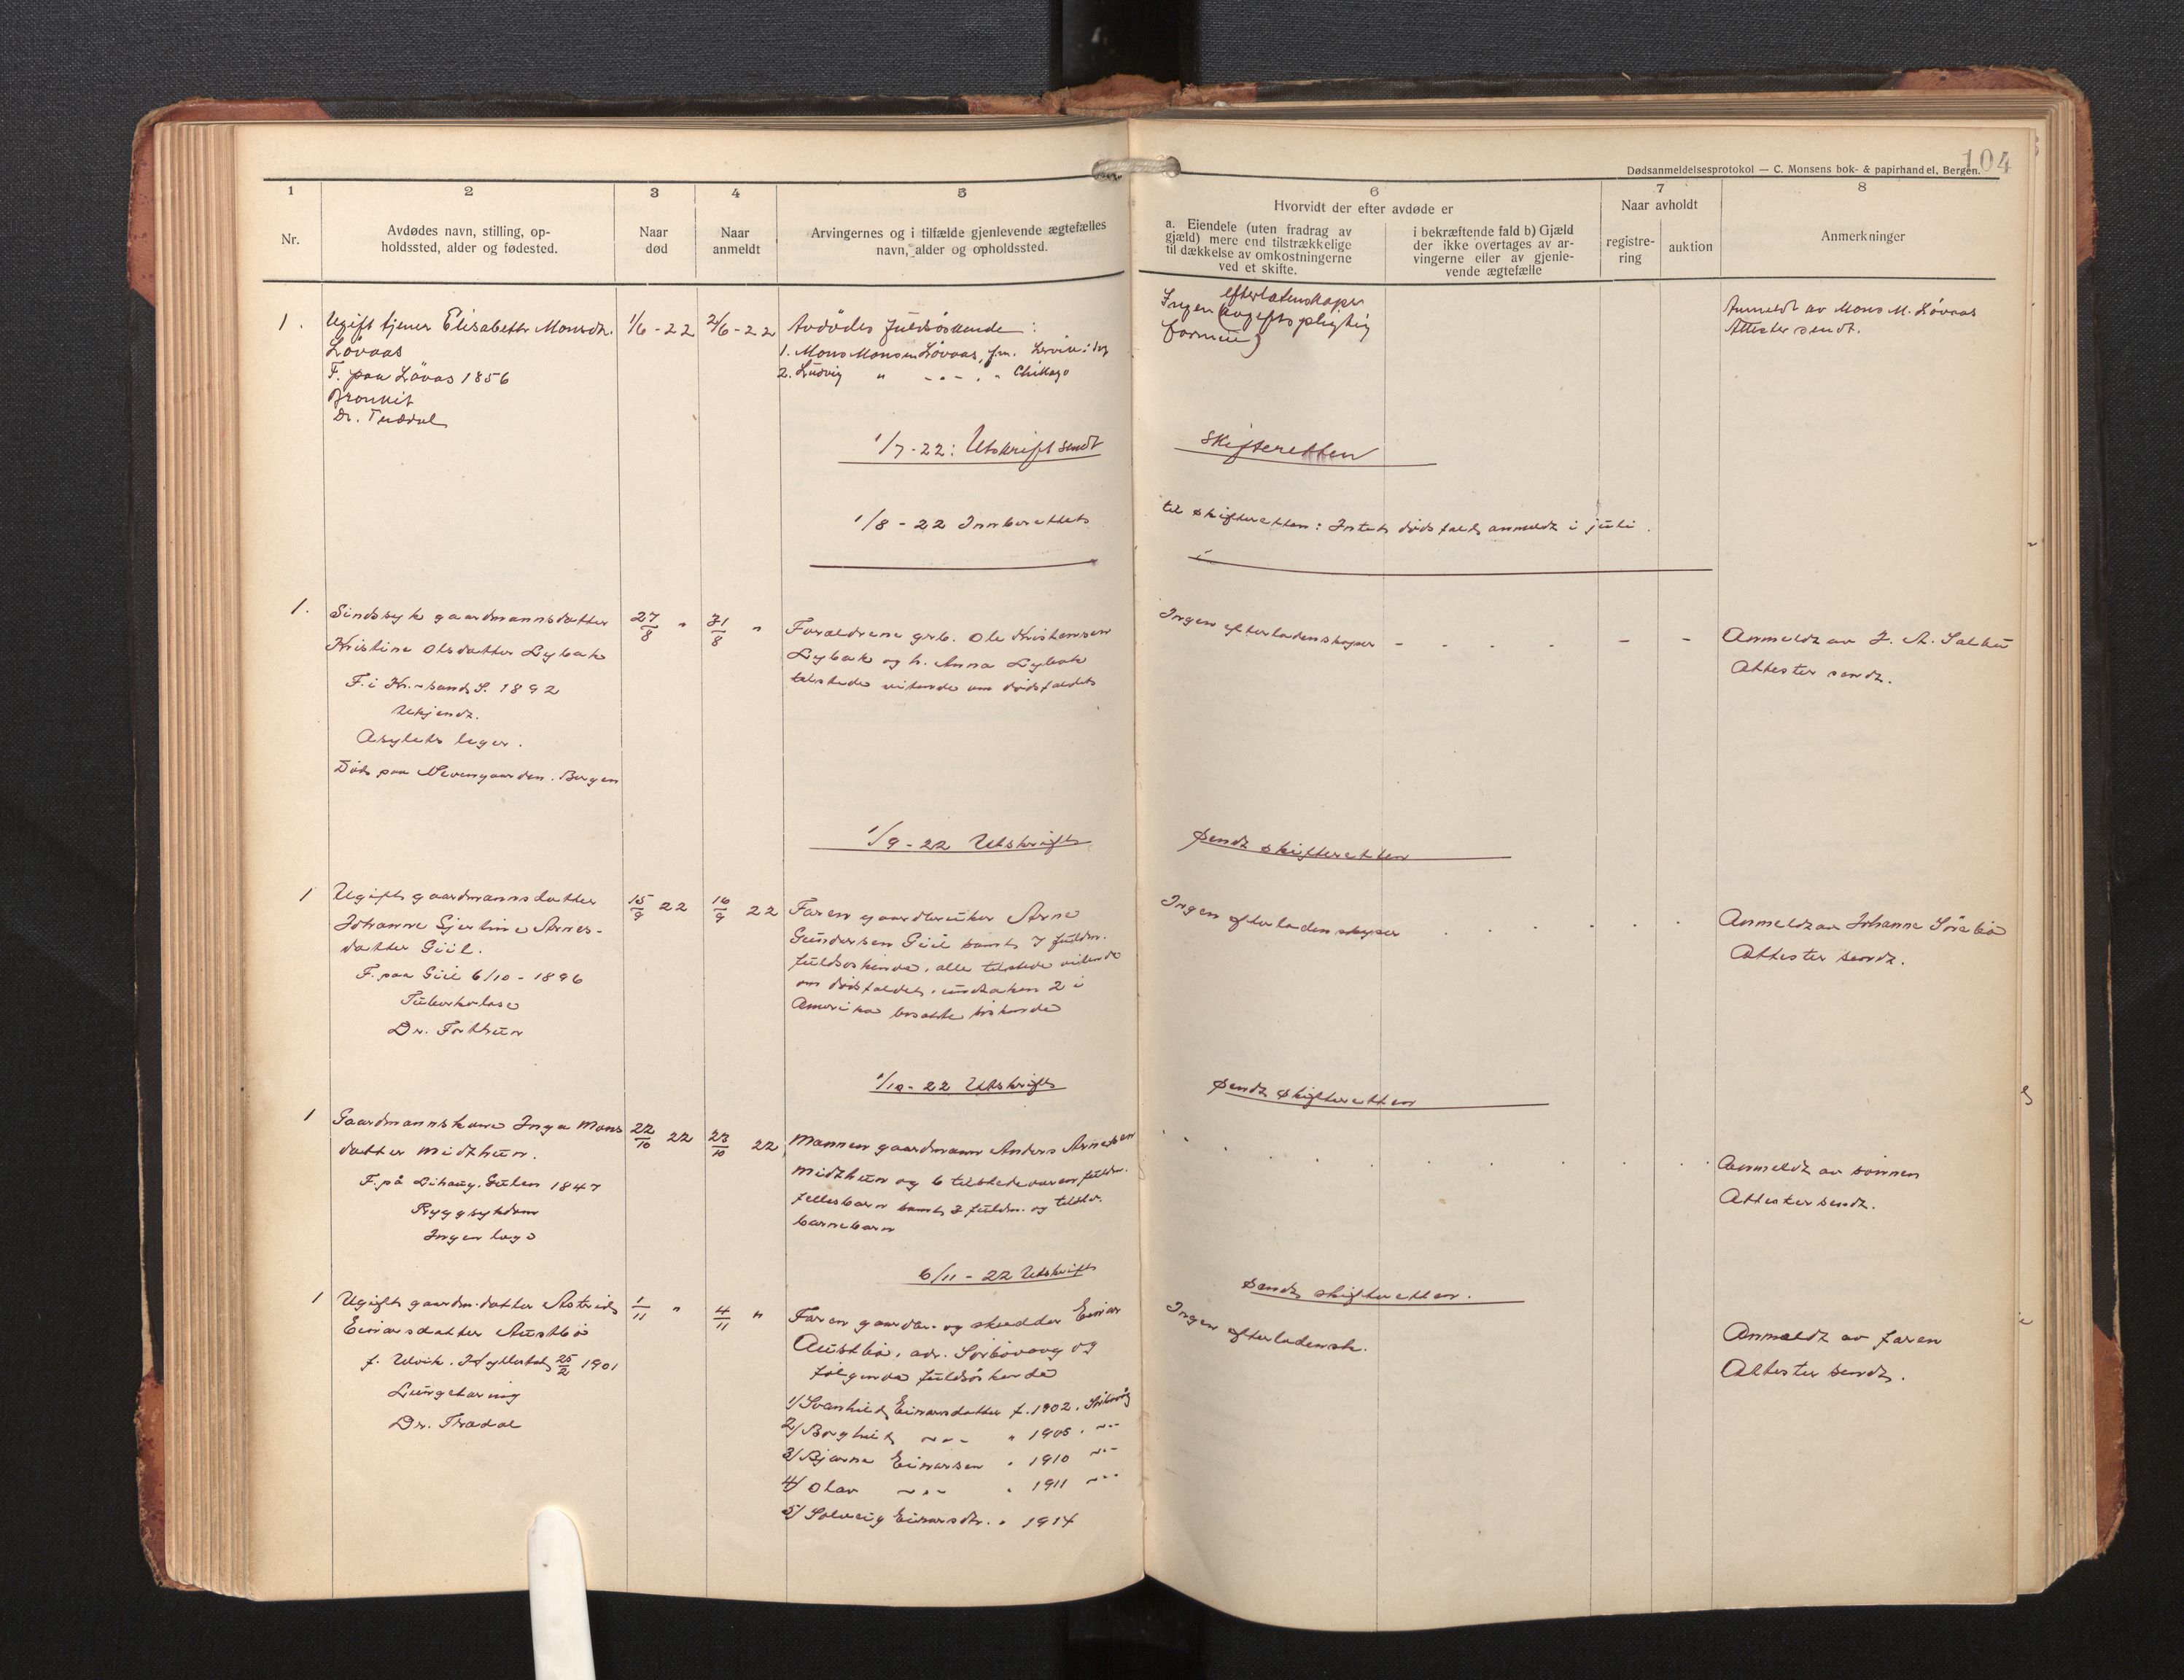 104
Dødsanmeldelsesprotokol — C. Monsens bok- & papirhandel, Bergen.
1 2 3 4 5 6 7 8
Nr.
Avdødes navn, stilling, op-
holdssted, alder og fødested.
Naar
død
Naar
anmeldt
Arvingernes og i tilfælde gjenlevende ægtefælles
navn, alder og opholdssted.
Hvorvidt der efter avdøde er
a. Eiendele (uten fradrag av
gjæld) mere end tilstrækkelige
til dækkelse av omkostningerne
ved et skifte.
i bekræftende fald b) Gjæld
der ikke overtages av ar-
vingerne eller av gjenle-
vende ægtefælle
Naar avholdt
registre-
ring
auktion
Anmerkninger
1.
Ugift tjener Elisabeth Monsdtr.
Løvaas
F. paa Løvas 1856
Bronkit
Dr.
1/6 - 22
2/6 - 22
Avdødes fuldsøskende:
1. Mons Monsen Løvaas, fm.
2. Ludvig " - . - . - Chikago
Ingen (avgiftspligtig
efterladenskaper
formue)
Anmeldt av Mons M. Løvaas
Attester sendt.
1/7 - 22: Utskrift sendt skifteretten
1/8 - 22 Innberettet til skifteretten: Intet dødsfald anmeldt i juli.
1.
Sindssyk gaardmannsdatter
Kristine Olsdatter Lybak
F. i Kr.-sand S. 1892
Ukjendt.
Asylets leger.
Død paa Nevengaarden. Bergen
27/8 "
31/8 "
Foræeldrene grb. Ole Kristensen
Lybak og h. Anna Lybak
tilstede vitende om dødsfaldet
Ingen efterladenskaper - . . . - -
Anmeldt av J. A.
Attester sendt.
1/9 - 22 Utskrift sendt skifteretten
1
Ugift gaardmannsdatter
Johanne Gjertine Arnes-
datter Giil.
F. paa Giil 6/10 - 1896
Tuberkulose
Dr. Forthun
15/9 22
16/9 22
Faren gaardbruker Arne
Gundersen Giil samt 7 fuldm.
fuldsøskende, alle tilstede vitende
om dødsfaldet, undtaken 2 i
Amerika bosatte søskende
Ingen efterladenskaper . . . . . .
Anmeldt av Johanne Sørebø
Attester sendt.
1/10 - 22 Utskrift sendt skifteretten
1
Gaardmannskone Inga Mons
datter Midthun.
F. på Dihaug. Gulen 1847
Ryggsykdom
Ingen læge
22/10 22
23/10 22
Mannen gaardmann Anders Arnesen
Midthun og 6 tilstedevaren fuldm.
fellesbarn samt 3 fuldm. og tilstev.
barnebarn
Anmeldt av sønnen
Attester sendt.
6/11 - 22 Utskrift sendt skifteretten.
1
Ugift gaardm.datter Astrid
Einarsdatter Austbø
f. Ulvik. Hyllestad 25/2 1901
Lungetæring
Dr. Trædal
1/11 "
4/11 "
Faren gaardbr. og skredder Einar
Austbø, adr. Sørbøvaag og
følgende fuldsøskende
1/ Svanhild Einarsdatter f. 1902. Sørbøvåg
2/ Borghild ~ . - " 1905. ~ . -
3/ Bjarne Einarsen " 1910 ~ . -
4/ Olav ~ . ~ " 1911 ~ . -
5/ Solveig Einarsdtr. " 1914
Ingen efterladensk.
Anmeldt av faren
Attester sendt.